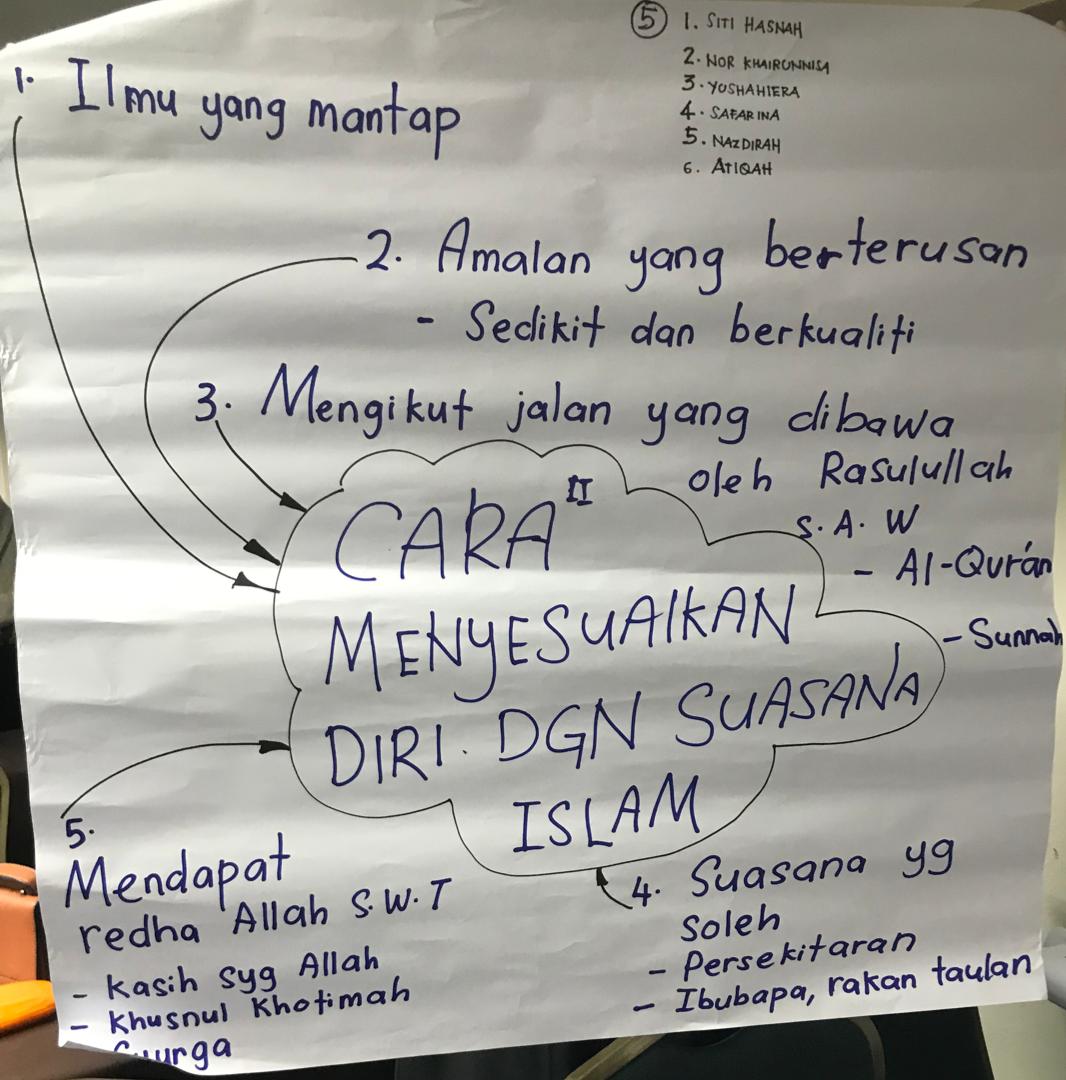 ⑤ 1. SITI HASNAH
2. NOR KHAIRUNNISA
3. YUSHAHIERA
4. SAFARINA
5. NAZDIRAH
6. ATIQAH
1. Ilmu yang mantap
2. Amalan yang berterusan
- Sedikit dan berkualiti
3. Mengikut jalan yang dibawa
oleh Rasulullah
S.A.W
- Al-Qur'an
- Sunnah
CARA II
MENYESUAIKAN
DIRI. DGN SUASANA
ISLAM
4. Suasana yg
soleh
- Persekitaran
- Ibubapa, rakan taulan
5.
Mendapat
redha Allah S.W.T
- Kasih syg Allah
- Khusnul Khotimah